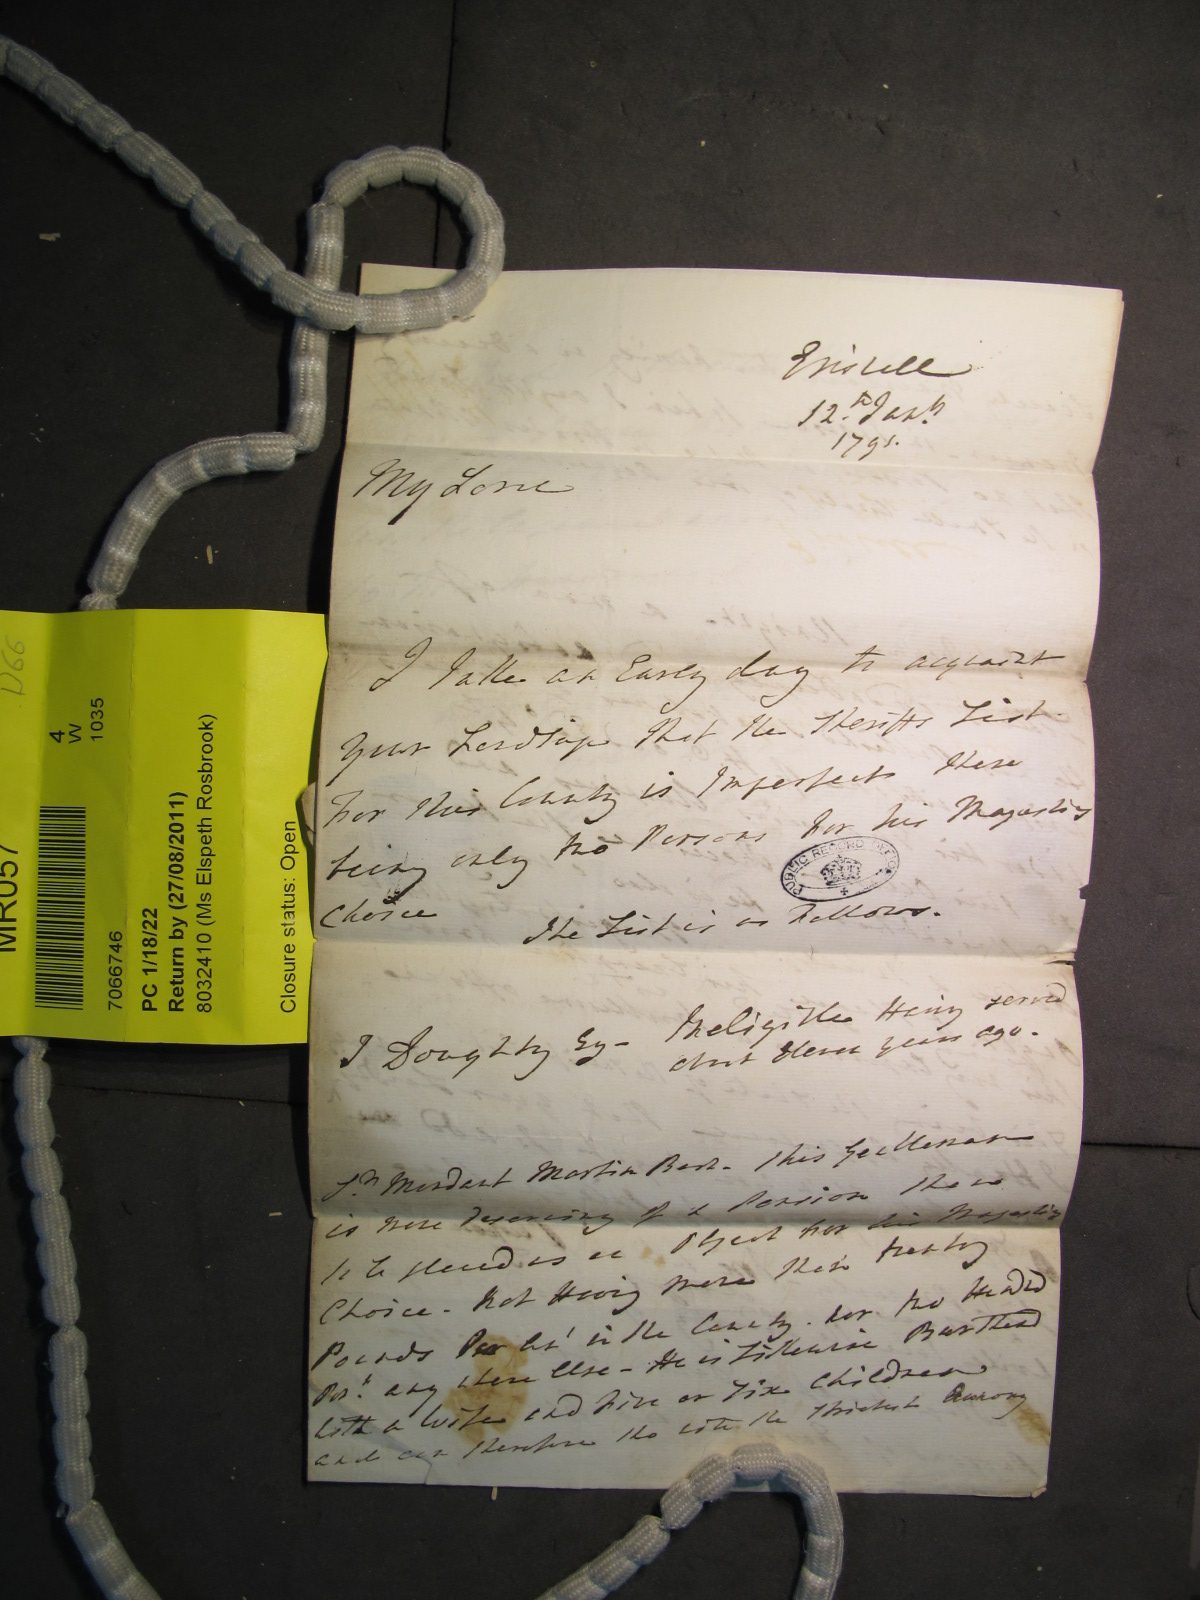 Eriswell
12th Janry
1791.
My Lord
I take an Early day to acquaint
your Lordship that the Sheriffs List
for this County is Imperfect there
being only two Persons for his Majestys
Choice
The List is as Follows.
J Doughty Esq- Ineligible Having served
about Eleven years ago.
Sr Mordant Martin Bart. This Gentleman
is more deserving of a Pension than
to be placed as an Object for his Majestys
Choice - Not Having more than twenty
Pounds Per An in the County. nor two Hundred
any where Else - He is Likewise Burthend
with a wife and five or six children
and can therefore tho with the strictest
PUBLIC RECORD OFFICE
D66
4
W
1035
MR057
7066746
PC 1/18/22
Return by (27/08/2011)
8032410 (Ms Elspeth Rosbrook)
Closure status: Open